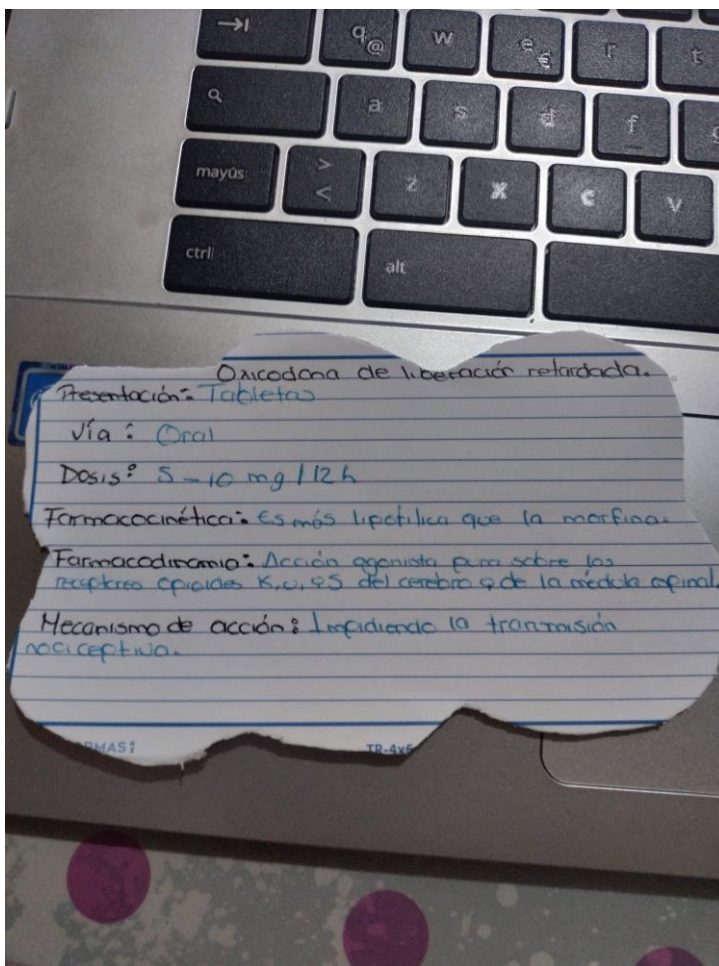 q @ w e € r t
a s d f
mayûs > < z x c v
ctrl alt
Oxicodona de liberación retardada.
Presentación: Tabletas
Vía: Oral
Dosis: 5-10 mg/12h
Farmacocinética: Es más lipofílica que la morfina.
Farmacodinamia: Acción agonista pura sobre los
receptores opioides K, u, y S del cerebro y de la médula espinal
Mecanismo de acción: Impidiendo la transmisión
nociceptiva.
TR-4x6